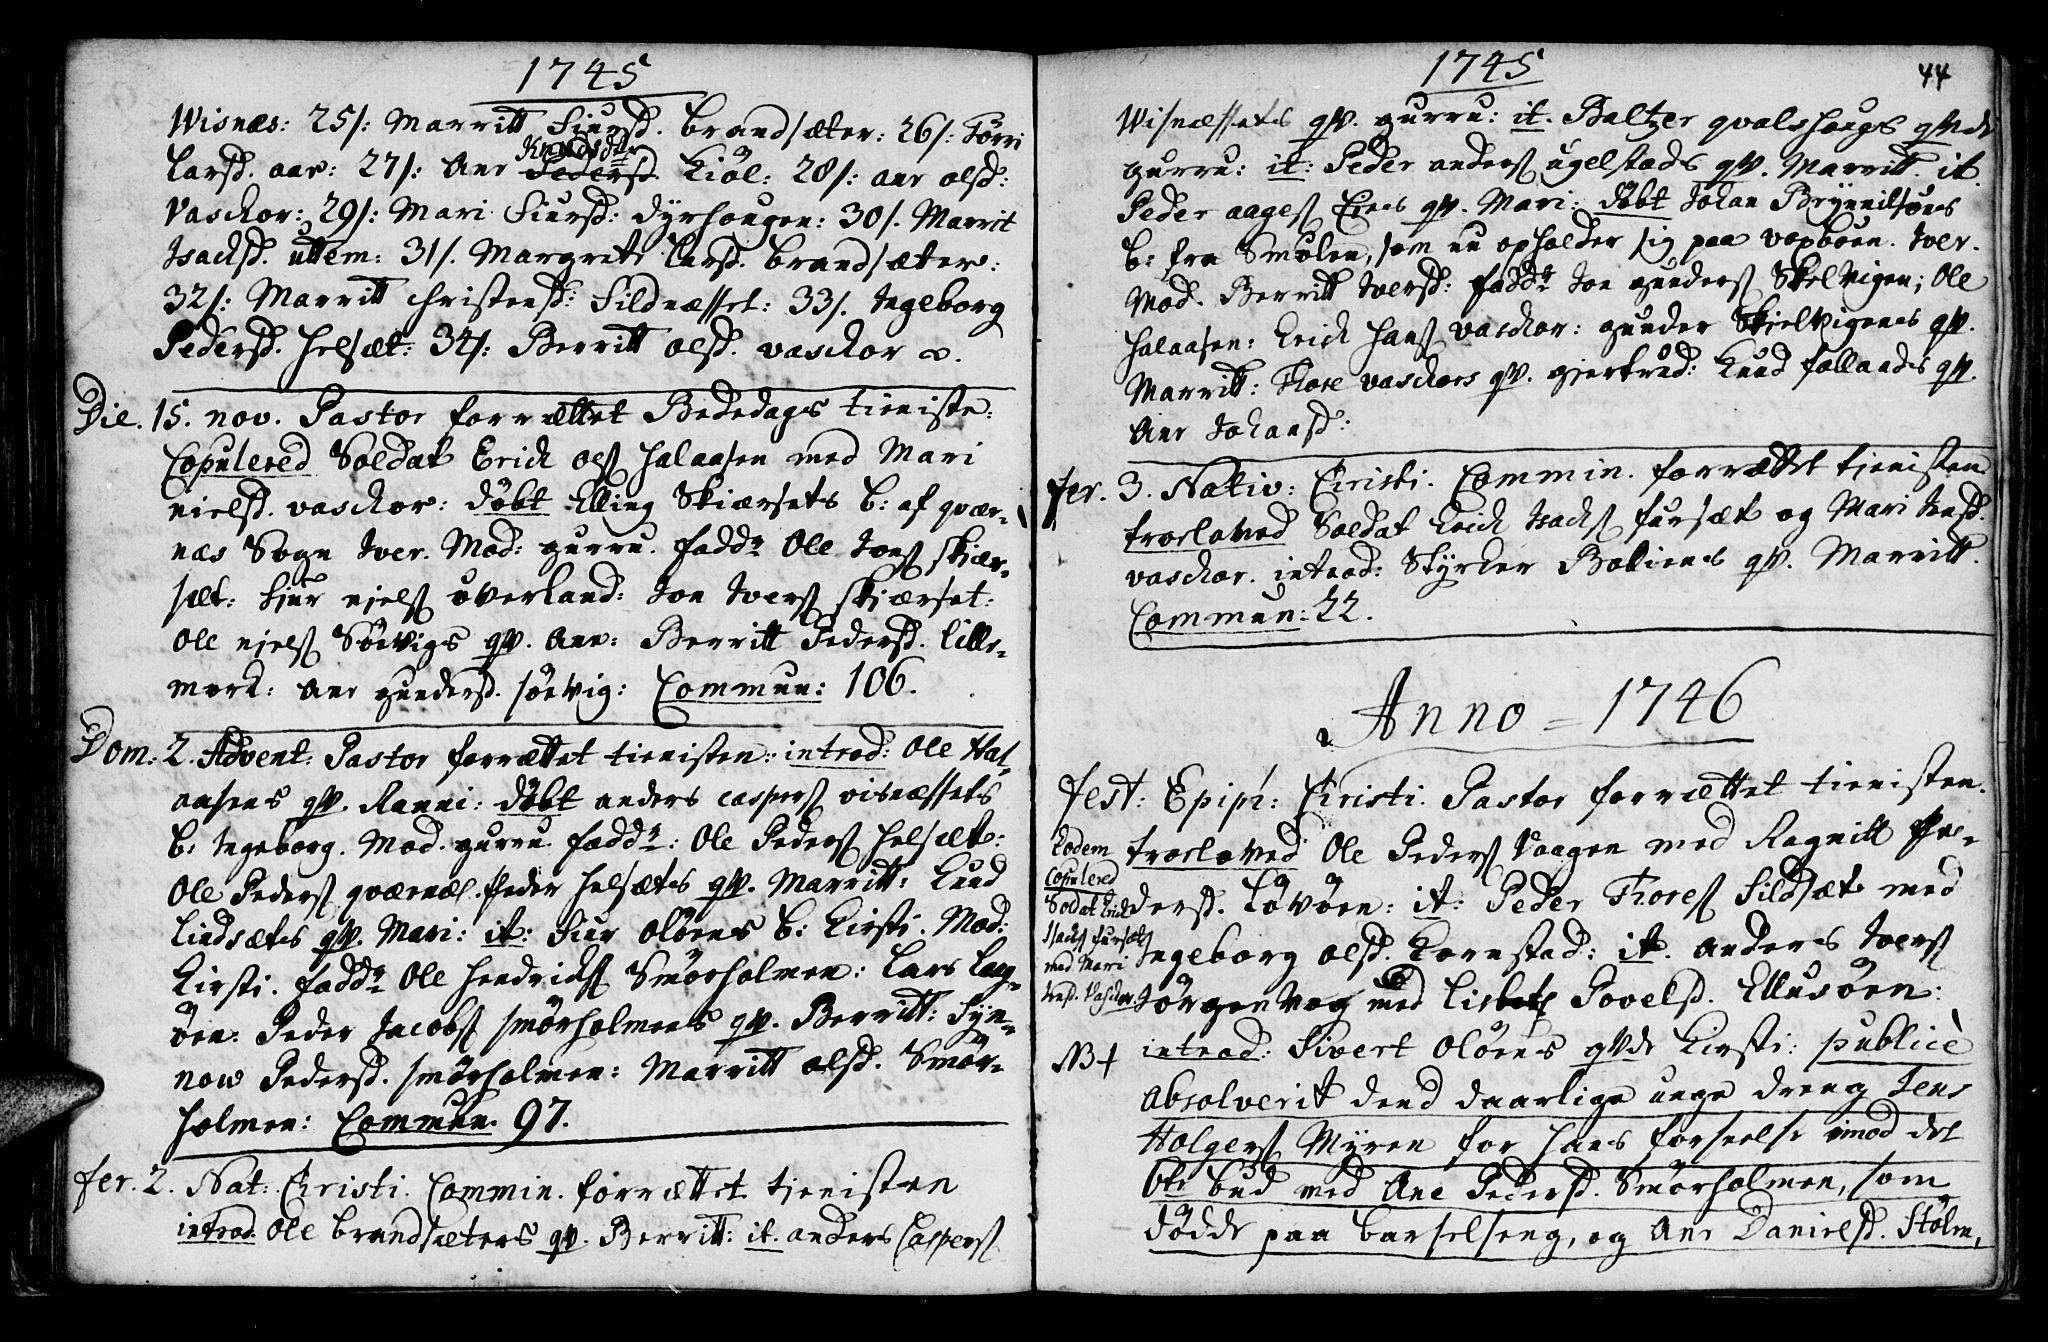 1745
Wisnæs: 25/: Marritt Siursd. brandsæter: 26/: Torri
Knudsdtr
Larsd. aar: 27/: Ane Pedersd. Kiöl: 28/: ane olsd:
Vaschor: 29/: Mari Siursd: dyrhougen: 30/. Marrit
Isachsd. uttem: 31/. Margrete Larsd. brandsæter:
32/: Marritt Christensd: Sildnæsset: 33/. Ingeborg
Pedersd. helsæt: 34/: Berritt olsd. vaschor
Die. 15. nov. Pastor forrættet Bededags tieniste:
Copulered Soldat Erich ols halaasen med Mari
nielsd. vaschor: döbt Elling Skiærsets b: af qvær-
næs Sogn Iver. Mod: gurru. fadd: Ole Jons skiær-
sæt: Siur niels överland: Jon Ivers skiærset:
Ole niels Söevigs qv. Ane: Berritt Pedersd. lille-
mork: Ane gundersd. söevig: Commun: 106.
Dom: 2. Advent: Pastor forrættet tienisten: introd: Ole Hal-
aasens qv. Ranni: döbt anders caspers visnæssets
b: Ingeborg. Mod. gurru. fadd: Ole Peders helsæt:
Ole Peders qværnæs. Peder helsæts qv. Marritt: Knud
Lindsæts qv. Mari: it: Siur olöens b: Kirsti. Mod:
Kirsti. fadd: Ole hendrichs Smörholmen: Lars Lang-
öen: Peder Jacobs smörholmens qv. Berritt: Syn-
now Pedersd. smörholmen: Marritt olsd. Smör-
holmen: Commun. 97.
fer. 2. Nat: Christi. Commin. forrættet tjenisten
introd. Ole brandsæters qv. Berritt: it. anders Caspers
1745
44
Wisnæssets qv. gurru: it. Baltzer qvalshougs qvde
gurru: it: Peder anders ugelstads qv. Marritt. it.
Peder aages Eenes qv. Mari: döbt Johan Brynnilsöns
b: fra Smölen, som nu opholder sig paa vopböen. Iver.
Mod. Berritt Iversd: fadd: Jon gunders Skelvigen; Ole
halaasen: Erich hans vaschor: gunder Skielvigens qv.
Marritt: Thore vaschors qv. gjertrud: Knud follands qv.
Ane Johansd:
fer. 3. Nativ: Christi. Commin. forrættet tjenisten
troelowed Soldat Erich Isachs fursæt og Mari Jensd.
vaschor. introd: Styrcker Boliens qv. Marritt.
Commun: 22.
Anno = 1746
fest: Epiph: Christi. Pastor forrættet tienisten.
troelowed Ole Peders Vaagen med Ragnill Pe-
dersd. Lövöen: it: Peder Thores Sildsæt med
Ingeborg olsd. Kornstad: it. anders Ivers
Jörgenvog med Lisbet Povelsd. Ellusöen:
Eodem
copulered
Sodat Erich
Isachs fursæt
med Mari
Jensd. Vaschor.
NB+
introd: Sivert Olöens qvde Kirsti: publicè
absolverit dend daarlige unge dreng Jens
Holgers Myren for hans forseelse imod det
6te bud med Ane Pedersd. Smörholmen, som
dödde paa barselseng, og Ane Danielsd. Stölen,